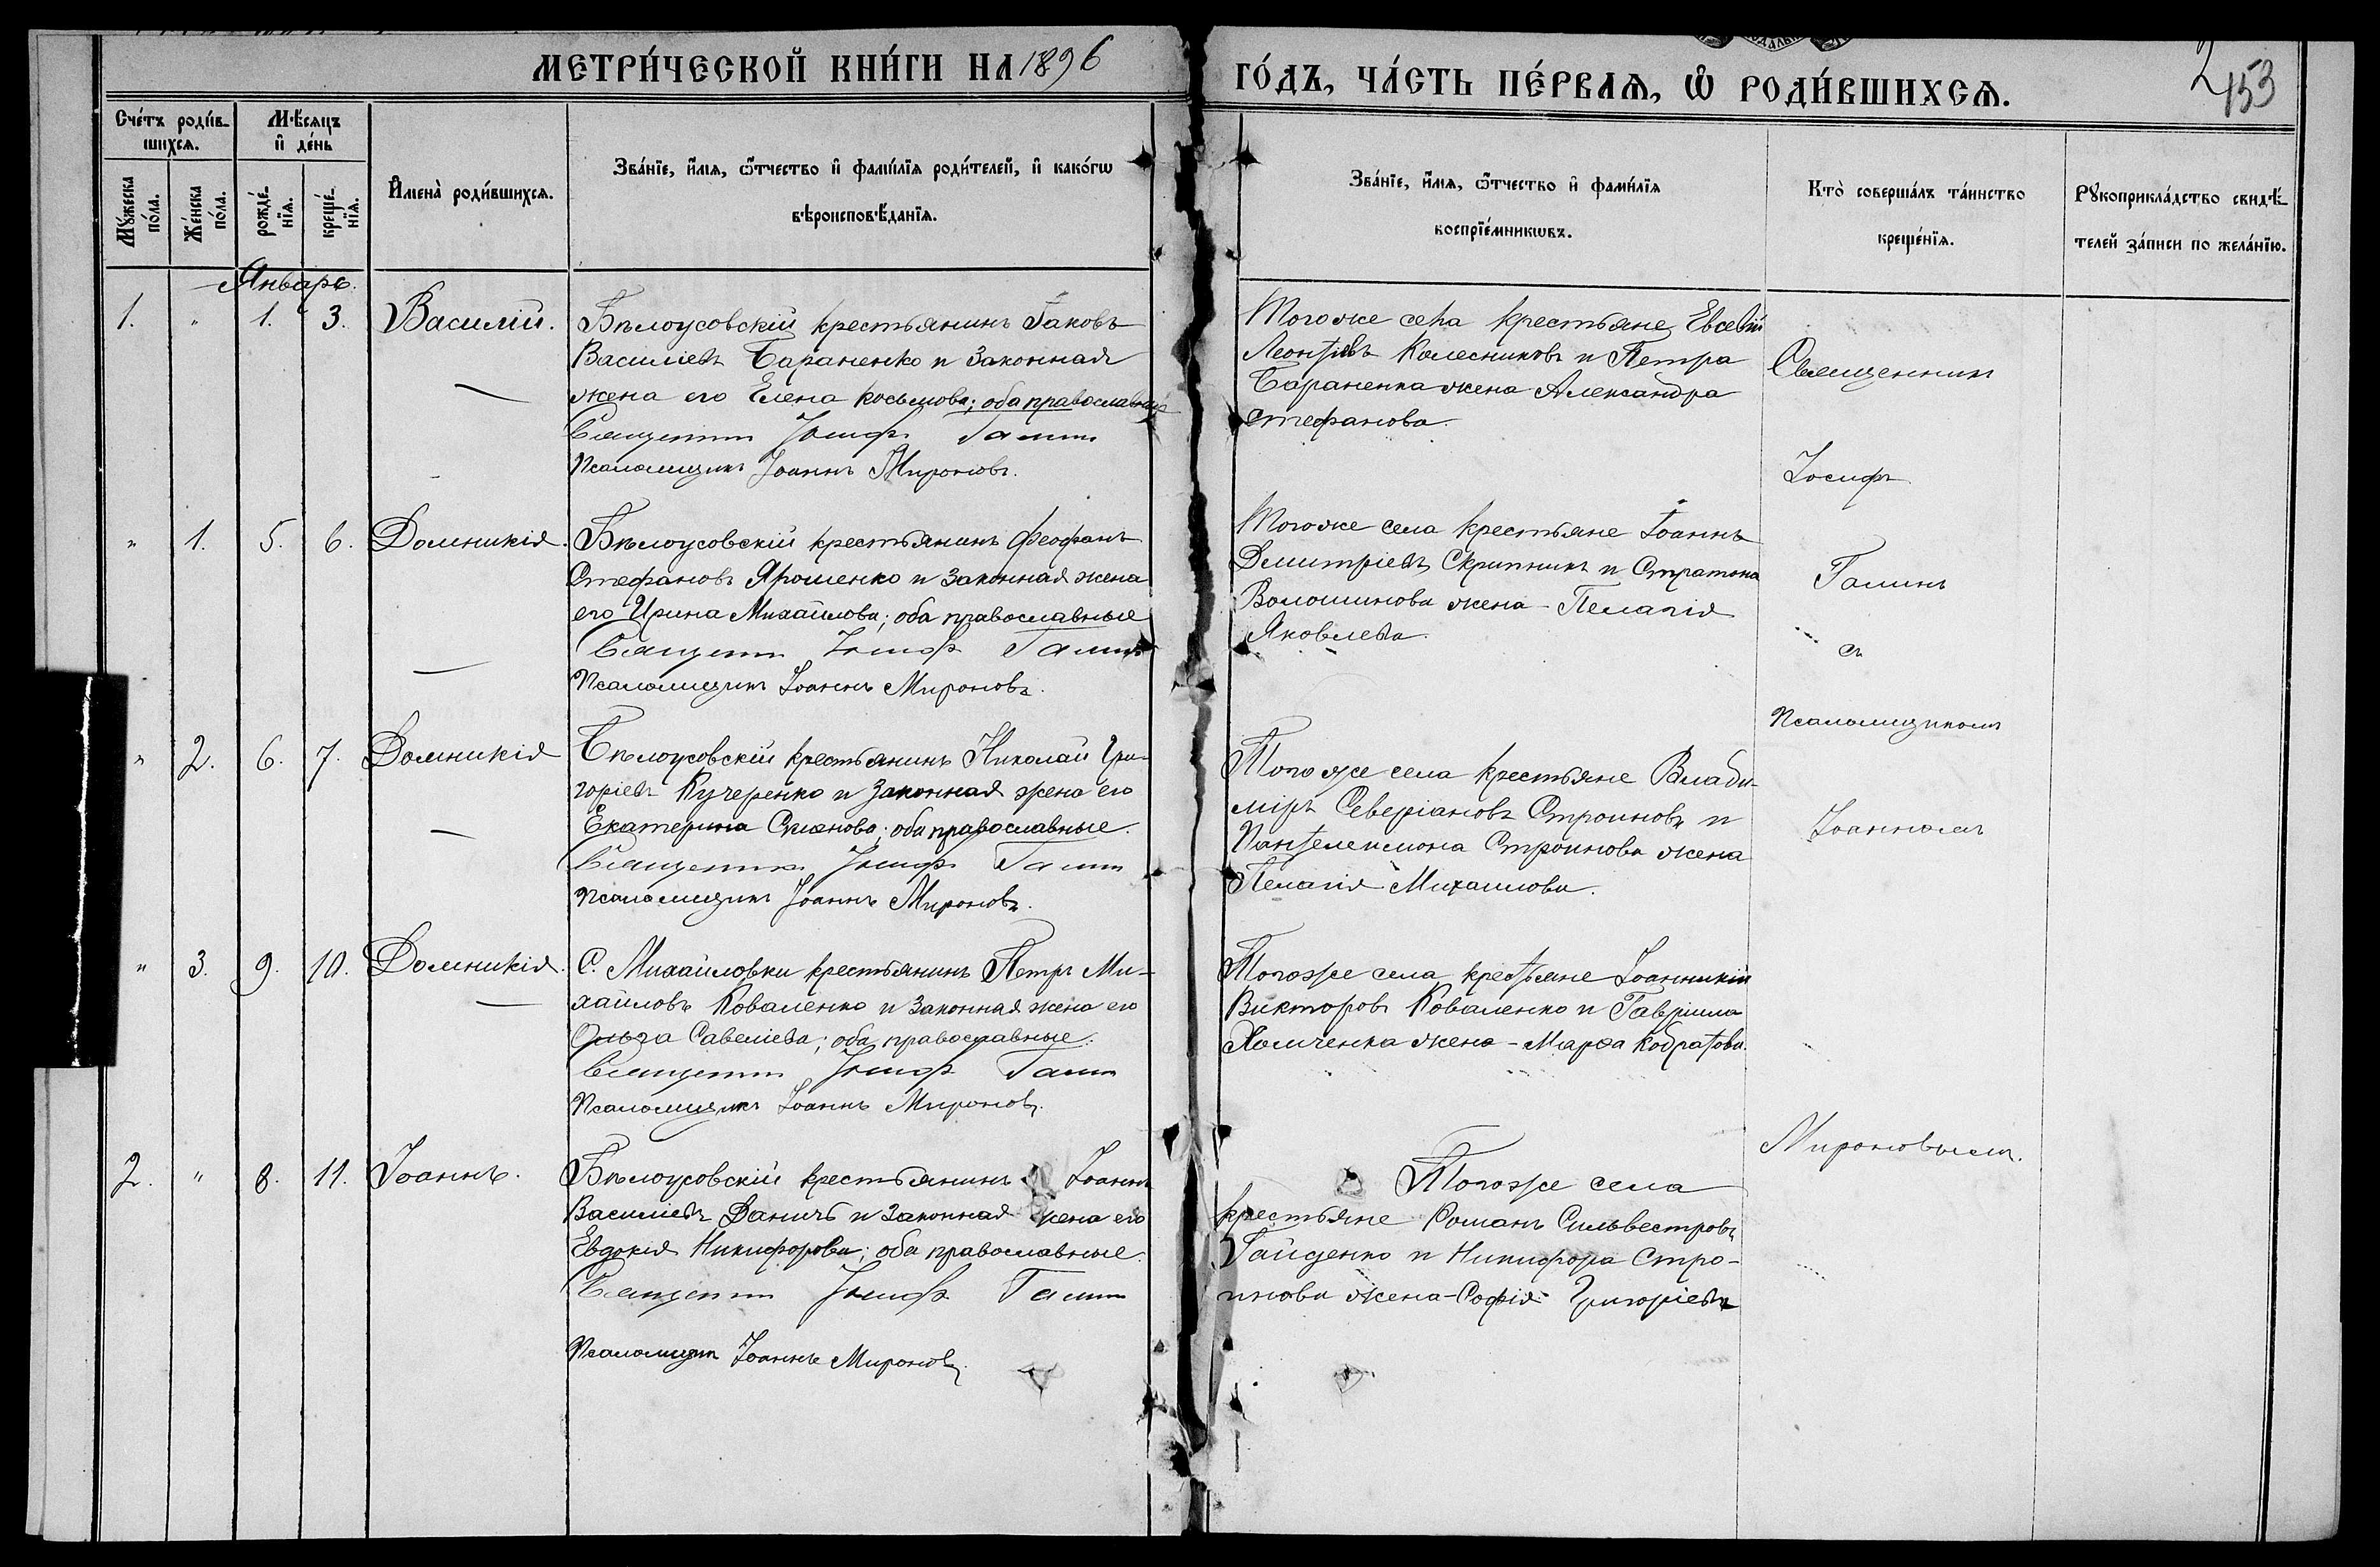 МЕТРИ́ЧЕСКОЙ КНИ́ГИ НА 1896
ГО́ДЪ, ЧА́СТЬ ПЕ́РВАѦ, Ѡ҆ РОДИ́ВШИХСѦ.
2
453
Сче́тъ роди́в-
шихсѧ.
Мѣ́сѧцъ
и҆ де́нь
Мꙋ́жеска
по́ла.
Же́нска
по́ла.
рожде́-
нїѧ.
креще́-
нїѧ.
И҆мена̀ роди́вшихсѧ.
Зва́нїе, и҆́мѧ, ѻ҆́тчество и҆ фами́лїѧ роди́телей, и҆ како́гѡ
вѣроисповѣ́данїѧ.
Зва́нїе, и҆́мѧ, ѻ҆́тчество и҆ фами́лїѧ
воспрїе́мникѡвъ.
Кто̀ соверша́лъ та́инство
креще́нїѧ.
Рꙋкоприкла́дство свидѣ́-
телей за́писи по жела́нїю.
Январь.
1. " 1. 3. Василій.
Бѣлоусовскій крестьянинъ Іаковъ
Василіевъ Бараненко и законная
жена его Елена Косьмова; оба православные
Священникъ Іосифъ Гаминъ
Псаломщикъ Іоаннъ Мироновъ.
Тогоже села крестьяне Евсевій
Леонтіевъ Колесниковъ и Петра
Бараненка жена Александра
Стефанова.
Священникъ
Іосифъ
" 1. 5. 6. Домникія.
Бѣлоусовскій крестьянинъ Феофанъ
Стефановъ Ярошенко и законная жена
его Ирина Михайлова; оба православные
Священникъ Іосифъ Гаминъ
Псаломщикъ Іоаннъ Мироновъ.
Тогоже села крестьяне Іоаннъ
Димитріевъ Скрипникъ и Стратона
Волошинова жена - Пелагія
Яковлева.
Гаминъ
съ
Псаломщикомъ
" 2. 6. 7. Домникія
Бѣлоусовскій крестьянинъ Николай Гри-
горіевъ Кучеренко и законная жена его
Екатерина; оба православные.
Священникъ Іосифъ Гаминъ
Псаломщикъ Іоаннъ Мироновъ.
Того же села крестьяне Влади-
міръ Северіановъ Строиновъ и
Пантелеимона Строинова жена
Пелагія Михаилова.
Іоанномъ
" 3. 9. 10. Домникія.
С. Михайловки крестьянинъ Петръ Ми-
хайловъ Коваленко и законная жена его
Ольга Савеліева; оба православные.
Священникъ Іосифъ Гаминъ
Псаломщикъ Іоаннъ Мироновъ.
Тогоже села крестьяне Іоанникій
Викторовъ Коваленко и Гавріила
Хомченка жена - Марѳа Кодратова.
Мироновымъ.
2. " 8. 11. Іоаннъ.
Бѣлоусовскій крестьянинъ Іоаннъ
Василіевъ Даничъ и законная жена его
Евдокія Никифорова; оба православные.
Священникъ Іосифъ Гаминъ
Псаломщикъ Іоаннъ Мироновъ.
Тогоже села
крестьяне Романъ Сильвестровъ
Гайденко и Никифора Стро-
инова жена - Софія Григоріева